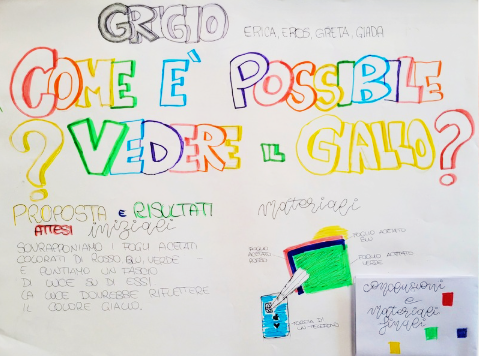 GRIGIO
ERICA, EROS, GRETA, GIADA
COME È POSSIBLE
? VEDERE IL GIALLO?
PROPOSTA E RISULTATI
ATTESI iniziali
SOVRAPPONIAMO I FOGLI ACETATI
COLORATI DI ROSSO, BLU, VERDE
E PUNTIAMO UN FASCIO
DI LUCE SU DI ESSI
LA LUCE DOVREBBE RIFLETTERE
IL COLORE GIALLO.
materiali
FOGLIO ACETATO
BLU
FOGLIO
ACETATO
ROSSO
FOGLIO ACETATO
VERDE
TORCIA DI
UN TELEFONO
conclusioni
e
materiali
finali